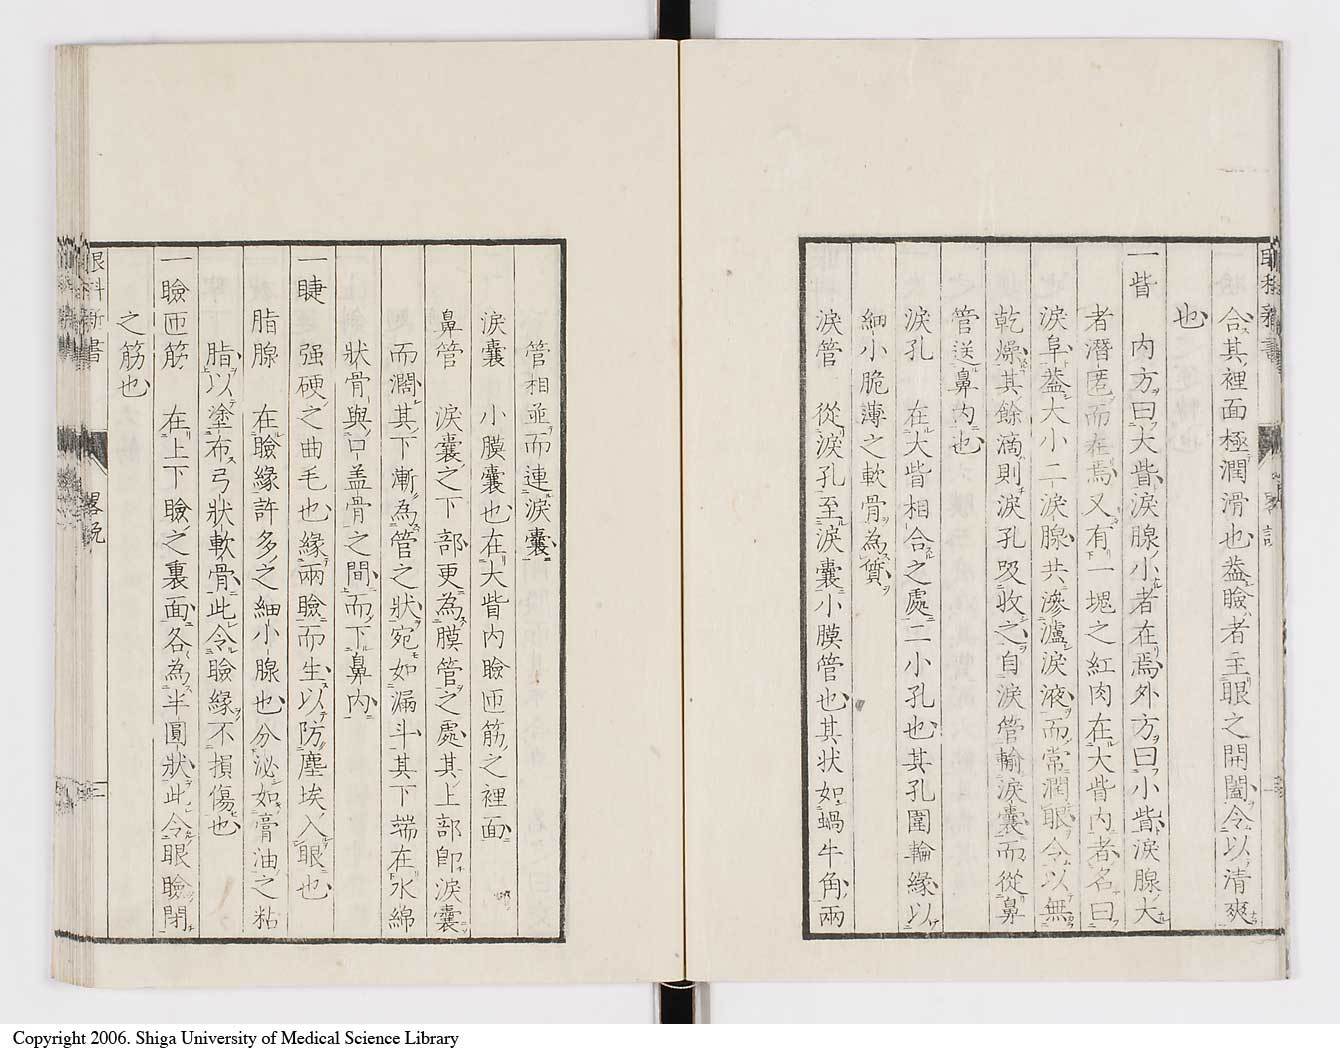 合其裡面極潤滑也葢瞼者主眼之開闔令以清爽
也
一眥　内方曰大眥淚腺小者在焉外方曰小眥淚腺大
者潛匿而在焉又有一塊之紅肉在大眥内者名曰
淚阜葢大小二淚腺共滲濾淚液而常潤眼令以無
乾燥其餘滴則淚孔吸收之自淚管輸淚囊而從鼻
管送鼻内也
淚孔　在大眥相合之處二小孔也其孔圍輪緣以
細小脆薄之軟骨為質
淚管　從淚孔至淚囊小膜管也其状如蝸牛角兩
管相並而連淚囊
淚囊　小膜囊也在大眥内瞼匝筋之裡面
鼻管　淚囊之下部更為膜管之處其上部即淚囊
而濶其下漸為管之状宛如漏斗其下端在水綿
状骨與口盖骨之間而下鼻内
一睫　强硬之曲毛也緣兩瞼而生以防塵埃入眼也
脂腺　在瞼緣許多之細小腺也分泌如膏油之粘
脂以塗布弓状軟骨此令瞼緣不損傷也
一瞼匝筋　在上下瞼之裏面各為半圓状此令眼瞼閉
之筋也
眼科新書
畧説
二
Copyright 2006. Shiga University of Medical Science Library